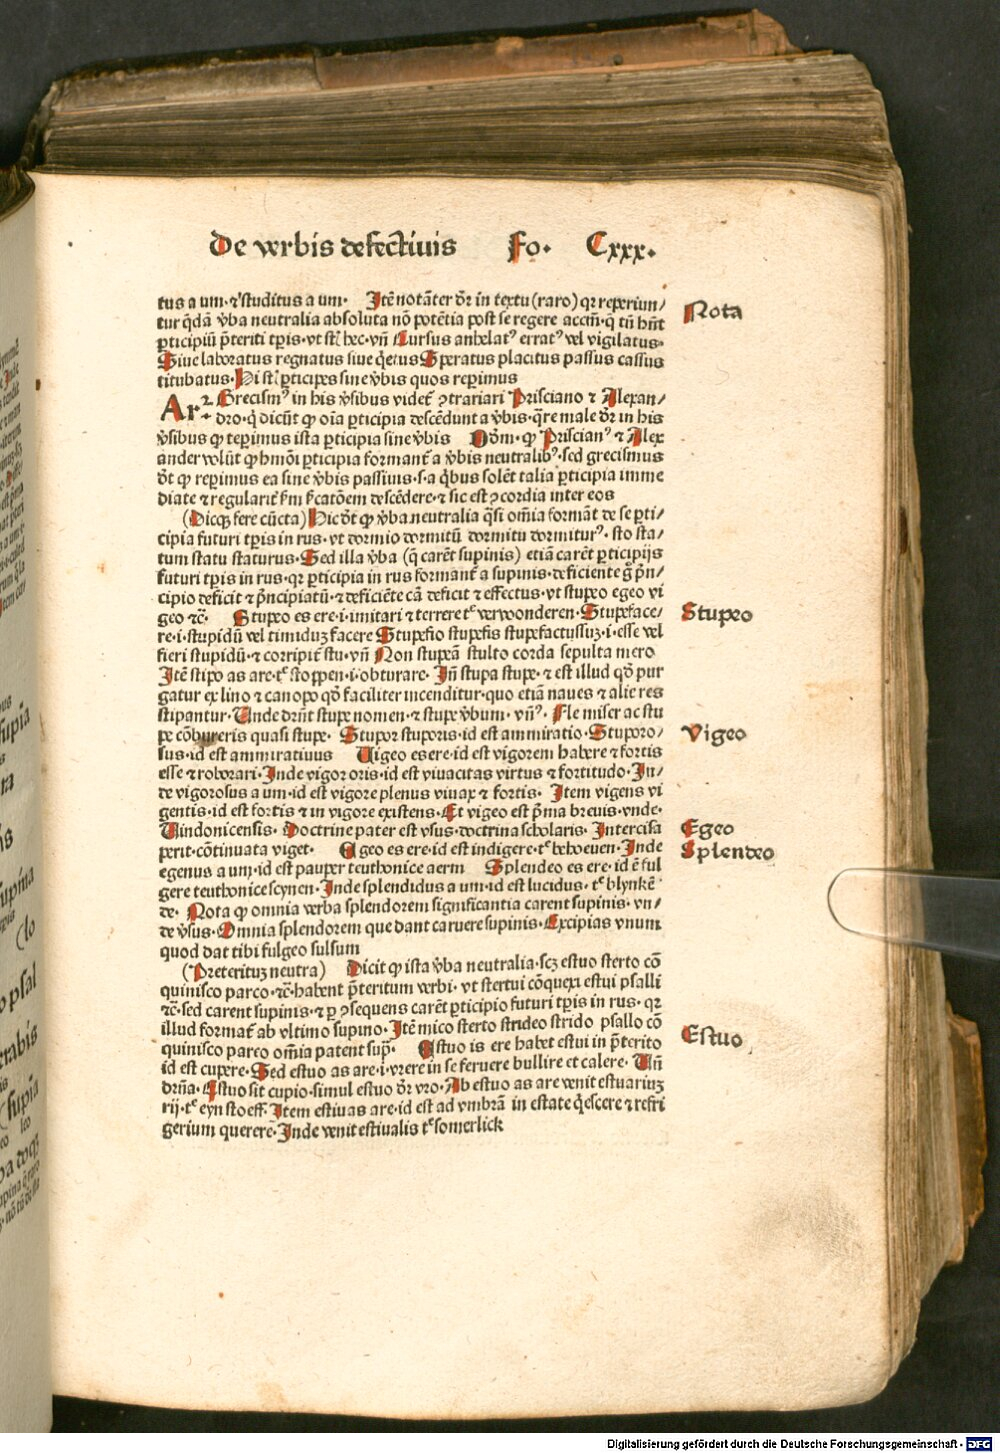 De verbis defectiuis Fo. Cxxx.
tus a um. ⁊ studitus a um. Itē notāter dr̄ in textu (raro) qr reperiun/
tur q̄dā v̄ba neutralia absoluta nō potētia post se regere accm̄. q̄ tn̄ hn̄t
ꝑticipiū p̄teriti tp̄is. vt st̄ hec. vn̄ Cursus anhelatꝰ erratꝰ vel vigilatus.
Siue laboratus regnatus siue q̄etus Speratus placitus passus cassus
titubatus. Hi st̄ ꝑticipes sine v̄bis quos reperimus
Ar. Grecismꝰ in his v̄sibus videt̄ ꝯtrariari Prisciano ⁊ Alexan/
dro. q̄ dicūt ꝙ oīa ꝑticipia descēdunt a v̄bis. q̄re male dr̄ in his
v̄sibus ꝙ reperimus ista ꝑticipia sine v̄bis Dōm. ꝙ Priscianꝰ ⁊ Alex
ander volūt ꝙ hmōi ꝑticipia formant̄ a v̄bis neutralibꝰ. sed grecismus
vt ꝙ reperimus ea sine v̄bis passiuis. s. a q̄bus solēt talia ꝑticipia imme
diate ⁊ regularit̄ fm̄ p̄catōem descēdere. ⁊ sic est ꝯcordia inter eos
(Dicqꝫ fere cūcta) Hic vt ꝙ v̄ba neutralia q̄si omīa formāt de se ꝑti/
cipia futuri tp̄is in rus. vt dormio dormitū dormitu dormiturꝰ. sto sta/
tum statu staturus. Sed illa v̄ba (q̄ carēt supinis) etiā carēt ꝑticipijs
futuri tp̄is in rus. qr ꝑticipia in rus formant̄ a supinis. deficiente g̊ p̄n/
cipio deficit ⁊ p̄ncipiatū. ⁊ deficiēte cā deficit ⁊ effectus. vt stupeo egeo vi
geo ⁊c̄. Stupeo es ere. i. imitari ⁊ terrere tᵉ verwonderen. Stupeface/
re. i. stupidū vel timiduꝫ facere Stupefio stupefis stupefactussuꝫ. i. esse vel
fieri stupidū. ⁊ corripit̄ stu. vn̄ Non stupeā stulto corda sepulta mero
Itē stipo as are. tᵉ stoppen. i. obturare. In̄ stupa stupe. ⁊ est illud qd̄ pur
gatur ex lino ⁊ canopo qd̄ faciliter incenditur. quo etiā naues ⁊ alie res
stipantur. Unde drn̄t stupe nomen. ⁊ stupe v̄bum. vn̄ꝰ. Fle miser ac stu
pe cōbureris quasi stupe. Stupor stuporis. id est ammiratio. Stuporo/
sus. id est ammiratiuus Uigeo es ere. id est vigorem habere ⁊ fortis
esse ⁊ roborari. Inde vigor oris. id est viuacitas virtus ⁊ fortitudo. In/
de vigorosus a um. id est vigore plenus viuax ⁊ fortis. Item vigens vi
gentis. id est fortis ⁊ in vigore existens. Et vigeo est p̄ma breuis. vnde.
Uindonicensis. Doctrine pater est vsus. doctrina scholaris. Intercisa
perit. cōtinuata viget. Egeo es ere. id est indigere. tᵉ behoeuen. Inde
egenus a um. id est pauper teuthonice aerm Splendeo es ere. id ē ful
gere teuthonice scynen. Inde splendidus a um. id est lucidus. tᵉ blynkē
de. Nota ꝙ omnia verba splendorem significantia carent supinis. vn/
de v̄sus. Omnia splendorem que dant caruere supinis. Excipias vnum
quod dat tibi fulgeo fulsum
(Preterituꝫ neutra) Dicit ꝙ ista v̄ba neutralia. scꝫ estuo sterto cō
quinisco parco. ⁊c̄. habent p̄teritum verbi. vt stertui cōquexi estui psalli
⁊c̄. sed carent supinis. ⁊ ꝑ ꝯsequens carēt ꝑticipio futuri tp̄is in rus. qr
illud format̄ ab vltimo supino. Itē mico sterto strideo strido psallo cō
quinisco parco omīa patent sup̄. Estuo is ere habet estui in p̄terito
id est cupere. Sed estuo as are. i. vrere in se feruere bullire et calere. Un̄
drn̄a. Estuo sit cupio. simul estuo dr̄ vro. Ab estuo as are venit estuariuꝫ
rij. tᵉ eyn stoeff. Item estiuas are. id est ad vmbrā in estate q̄escere ⁊ refri
gerium querere. Inde venit estiualis tᵉ somerlick
Nota
Stupeo
Vigeo
Egeo
Splendeo
Estuo
Digitalisierung gefördert durch die Deutsche Forschungsgemeinschaft - DFG